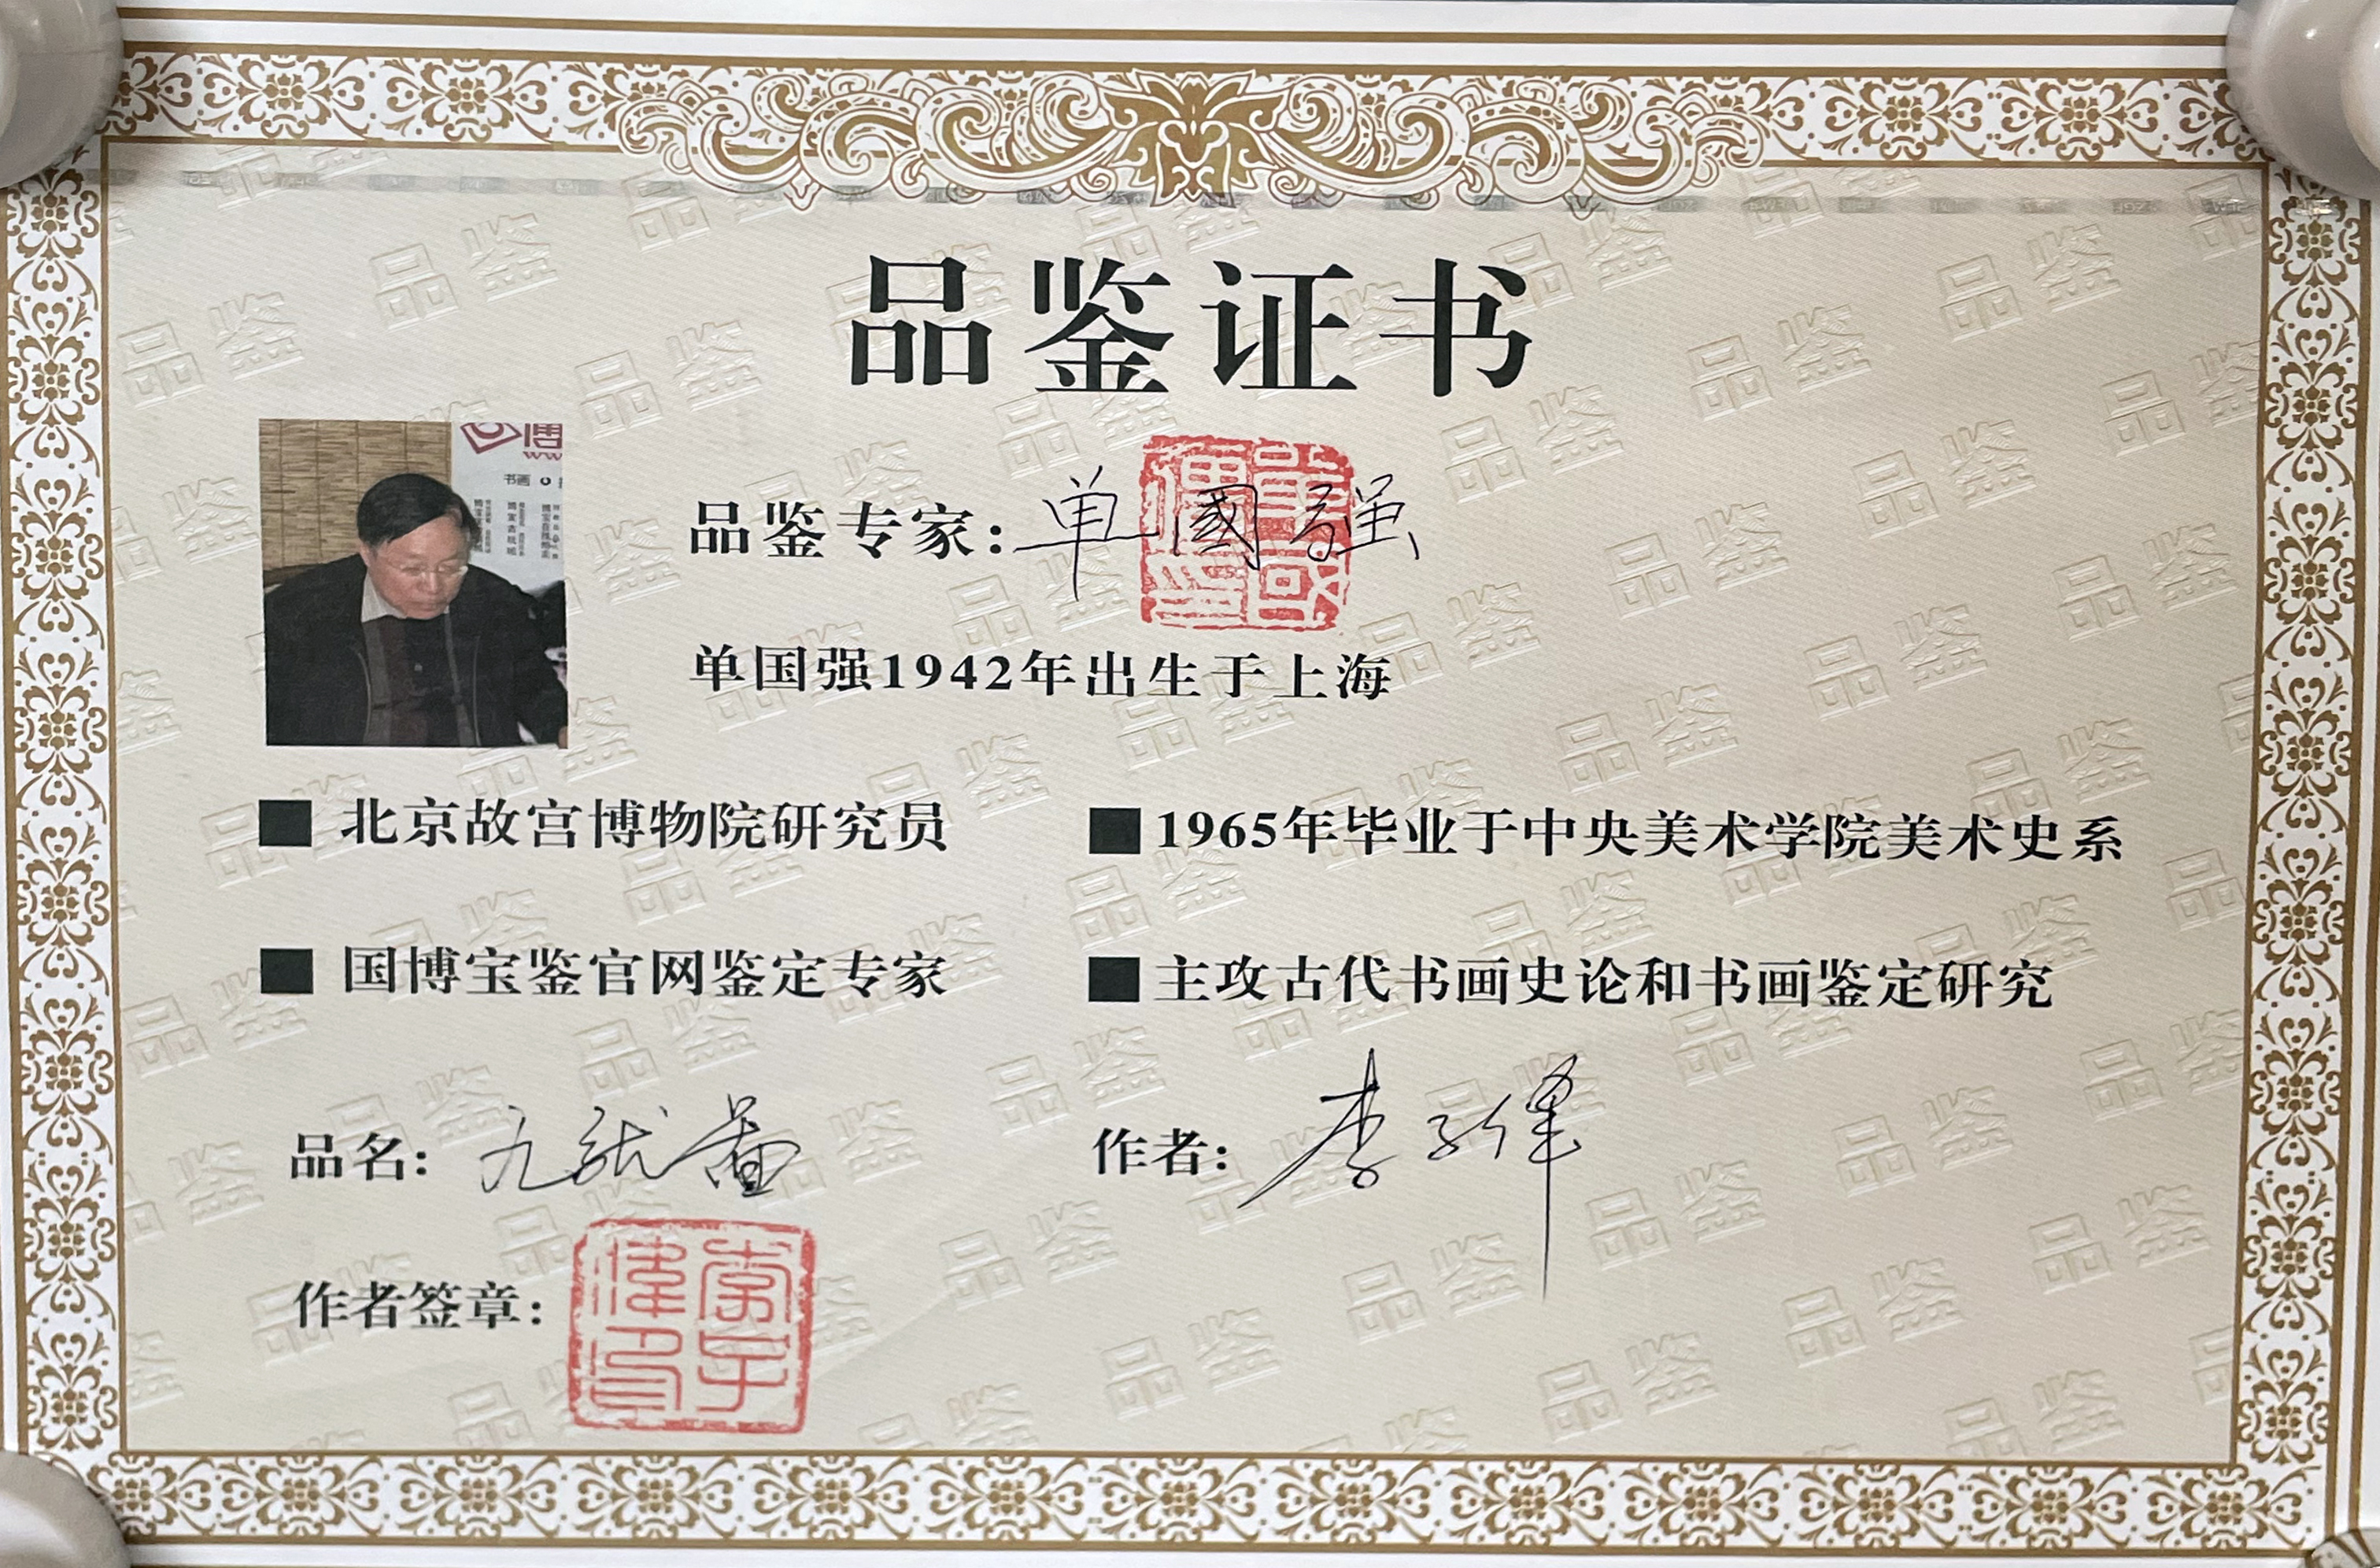 品鉴证书
博
ww
书画
品鉴专家：单國强
单国强1942年出生于上海
■ 北京故宫博物院研究员
■ 1965年毕业于中央美术学院美术史系
■ 国博宝鉴官网鉴定专家
■ 主攻古代书画史论和书画鉴定研究
品名：九龙图
作者：李子伟
作者签章：
李子
偉印